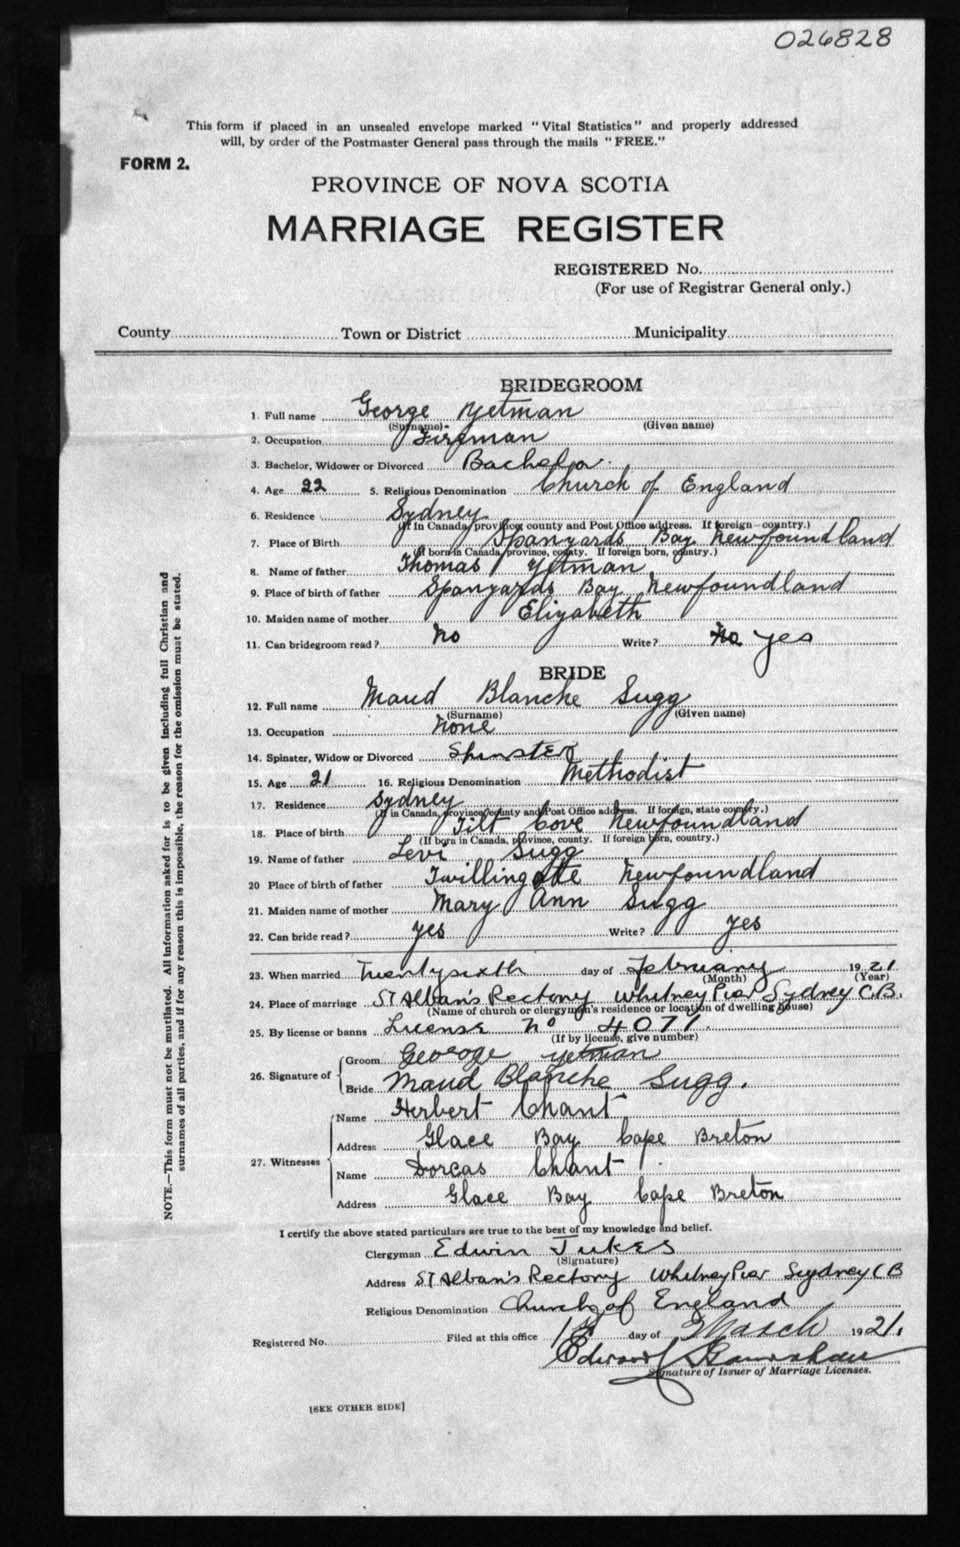 026828
This form if placed in an unsealed envelope marked "Vital Statistics" and properly addressed
will, by order of the Postmaster General pass through the mails "FREE."
FORM 2.
PROVINCE OF NOVA SCOTIA
MARRIAGE REGISTER
REGISTERED No.
(For use of Registrar General only.)
County Town or District Municipality
BRIDEGROOM
1. Full name George Yetman
(Surname) (Given name)
2. Occupation Fireman
3. Bachelor, Widower or Divorced Bachelor
4. Age 22 5. Religious Denomination Church of England
6. Residence Sydney
(If in Canada, province county and Post Office address. If foreign—country.)
7. Place of Birth Spanyards Bay Newfoundland
(If born in Canada, province, county. If foreign born, country.)
8. Name of father Thomas Yetman
9. Place of birth of father Spanyards Bay Newfoundland
10. Maiden name of mother Elizabeth
11. Can bridegroom read? No Write? No yes
BRIDE
12. Full name Maud Blanche Sugg
(Surname) (Given name)
13. Occupation None
14. Spinster, Widow or Divorced Spinster
15. Age 21 16. Religious Denomination Methodist
17. Residence Sydney
(If in Canada, province county and Post Office address. If foreign, state country.)
18. Place of birth Tilt Cove Newfoundland
(If born in Canada, province, county. If foreign born, country.)
19. Name of father Levi Sugg
20 Place of birth of father Twillingatte Newfoundland
21. Maiden name of mother Mary Ann Sugg
22. Can bride read? yes Write? yes
23. When married Twentysixth day of February 1921
(Month) (Year)
24. Place of marriage St Alban's Rectory Whitney Pier Sydney C.B.
(Name of church or clergyman's residence or location of dwelling house)
25. By license or banns License No 4071.
(If by license, give number)
26. Signature of Groom George Yetman
Bride Maud Blanche Sugg.
27. Witnesses Name Herbert Chant
Address Glace Bay Cape Breton
Name Dorcas Chant
Address Glace Bay Cape Breton
I certify the above stated particulars are true to the best of my knowledge and belief.
Clergyman Edwin Jukes
(Signature)
Address St Alban's Rectory Whitney Pier Sydney CB
Religious Denomination Church of England
Registered No. Filed at this office 1st day of March 1921.
Edward
Signature of Issuer of Marriage Licenses.
[SEE OTHER SIDE]
NOTE.—This form must not be mutilated. All information asked for is to be given including full Christian and
surnames of all parties, and if for any reason this is impossible, the reason for the omission must be stated.